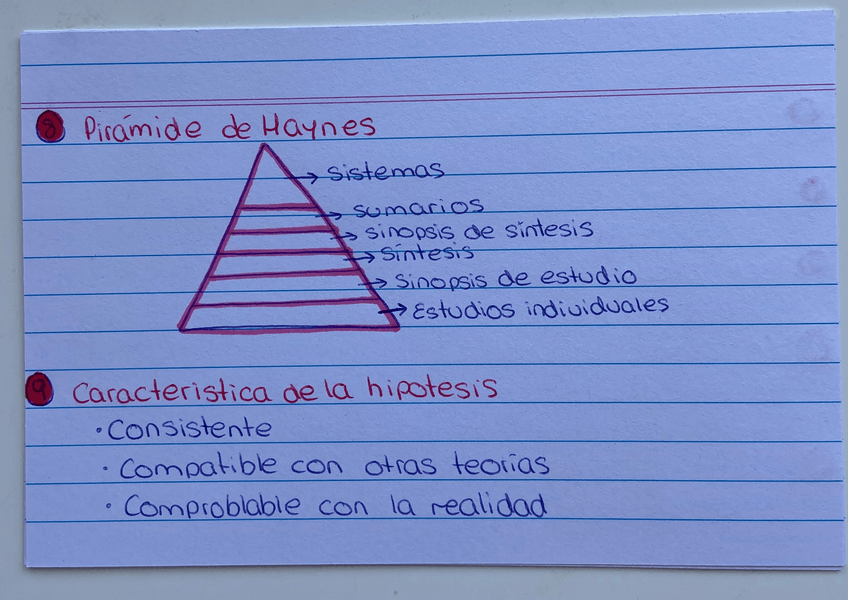 8 Pirámide de Haynes
→ sistemas
→ sumarios
→ sinopsis de síntesis
→ síntesis
→ sinopsis de estudio
→ Estudios individuales
9 Caracteristica de la hipotesis
• Consistente
• Compatible con otras teorías
• Comproblable con la realidad